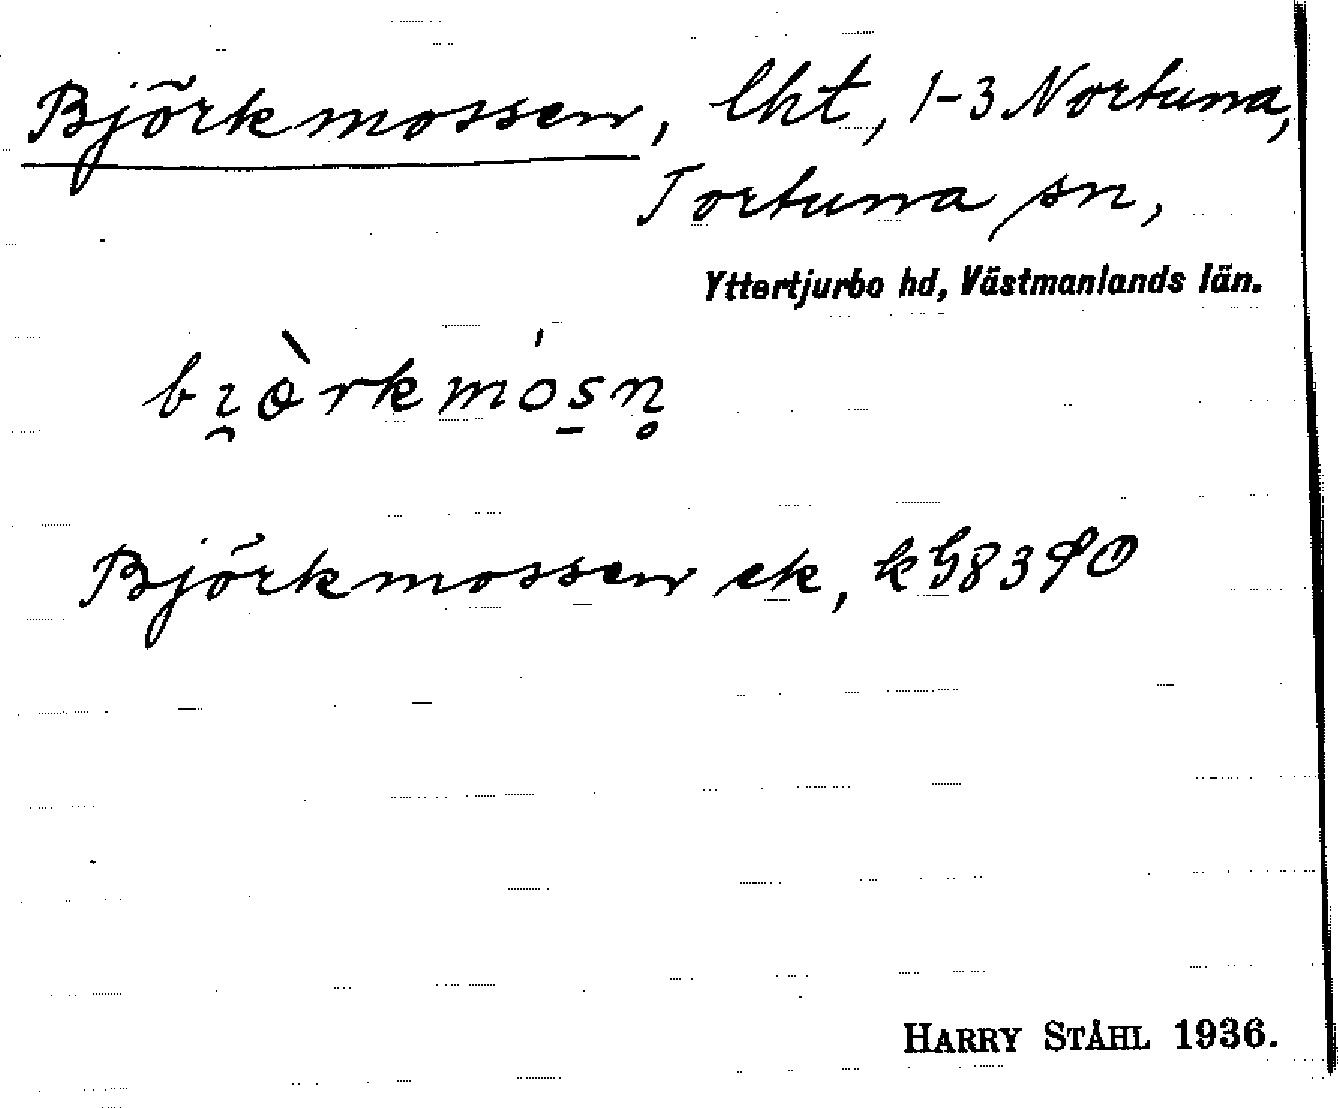 Björkmossen, lht, 1-3 Nortuna,
Tortuna sn,
Yttertjurbo hd, Västmanlands län.
Björkmossen ek,
HARRY STÅHL 1936.